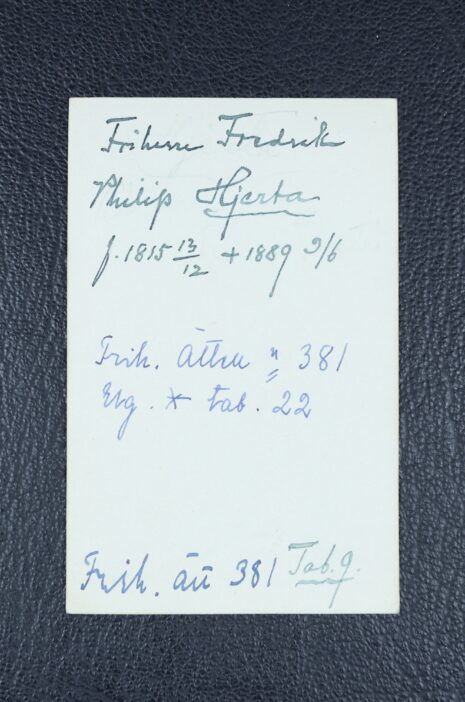 Friherre Fredrik
Philip Hjerta
f. 1815 13/12 + 1889 9/6
Frih. ätten n 381
Elg. * tab. 22
Frih. ätt 381 Tab. 9.